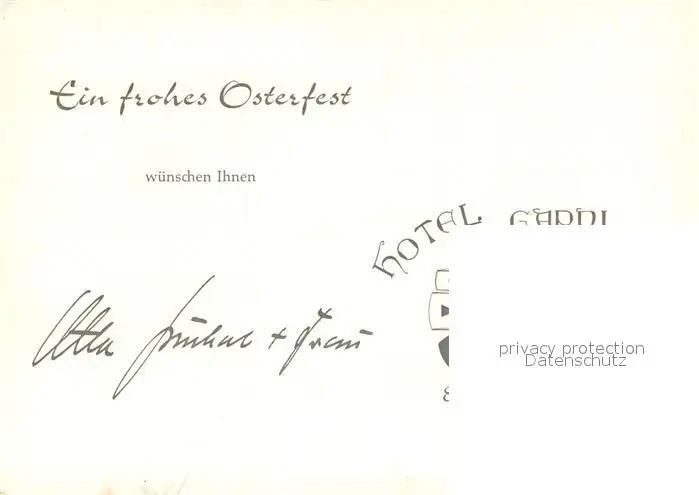 Ein frohes Osterfest
wünschen Ihnen
HOTEL GARNI
Otto + Frau
privacy protection
Datenschutz